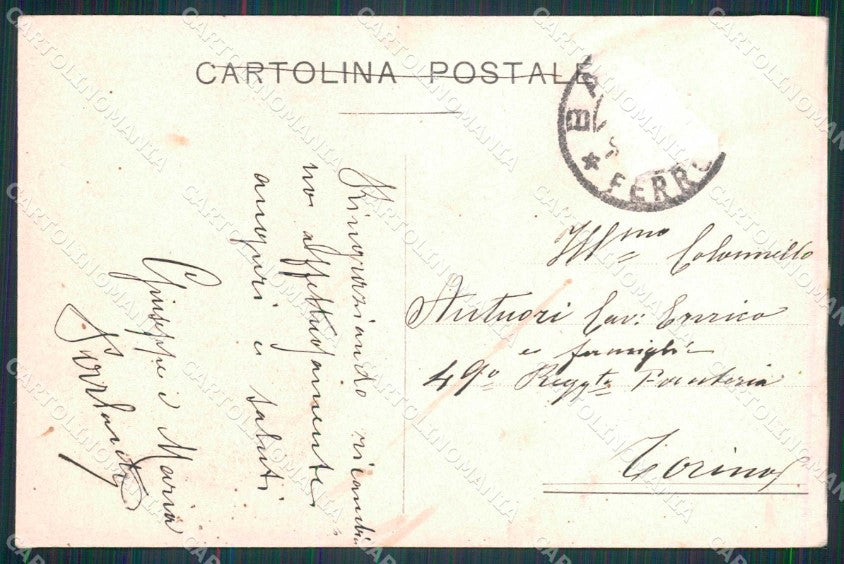 CARTOLINA POSTALE
BA
FERRO
Ringraziando ricambia
no affettuosamente
auguri e saluti
Giuseppe e Maria
Ill.mo Colonnello
Antuori Cav: Enrico
e famiglia
49° Reggta Fanteria
Torino
CARTOLINOMANIA